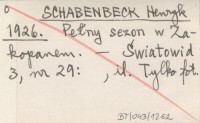 SCHABENBECK Henryk
1926. Pełny sezon w Za-
kopanem. — Światowid
3, nr 29: , il. Tylko fot.
BT/043/1262